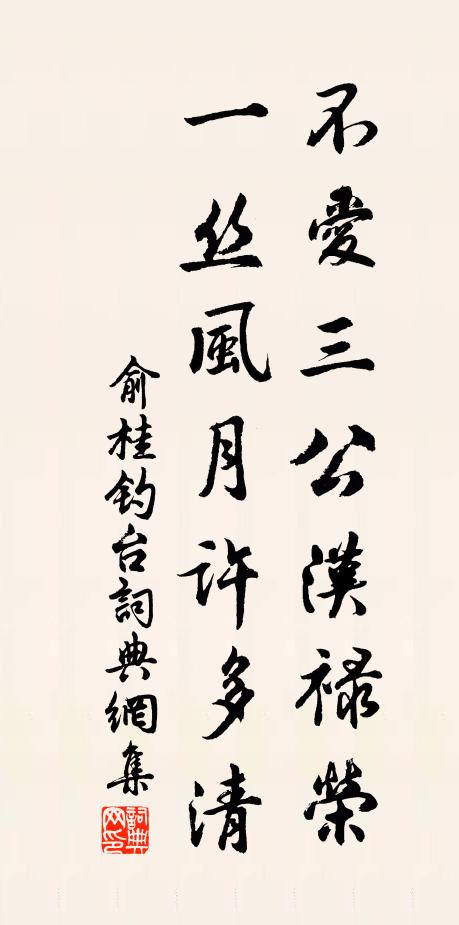 不愛三公漢祿榮
一丝風月許多清
俞桂钓台詞典網集
詞典网印